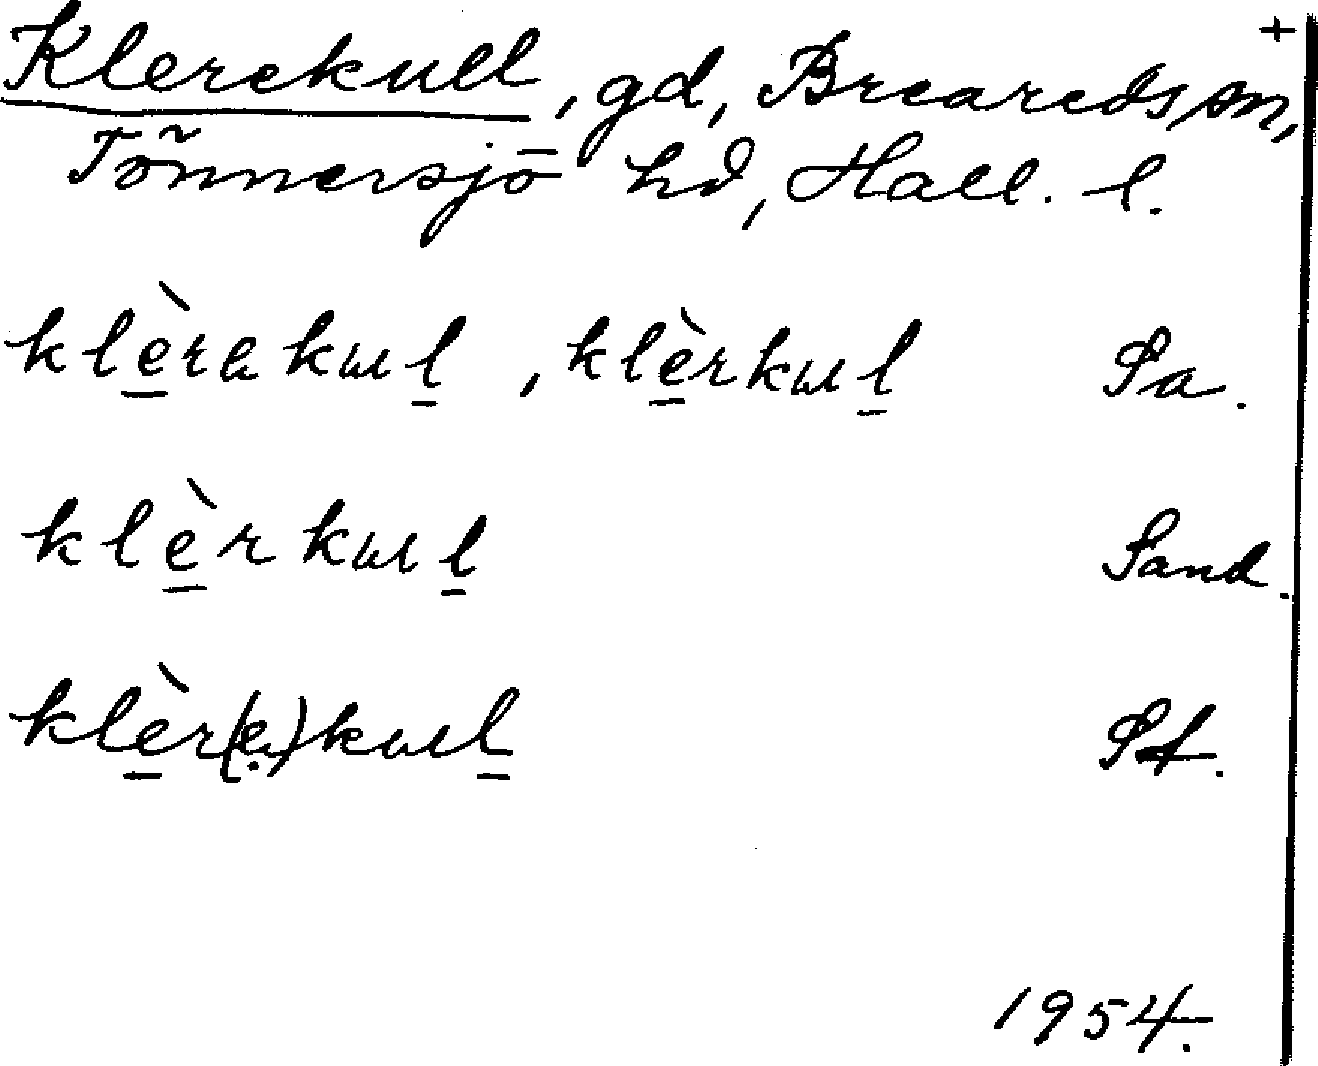 +
Klerekull, gd, Breareds sn,
Tönnersjö hd, Hall. l.
klè̱rakuḻ, klè̱rkuḻ Sa.
klè̱rkuḻ Sand.
klè̱r(ə)kuḻ St.
1954.